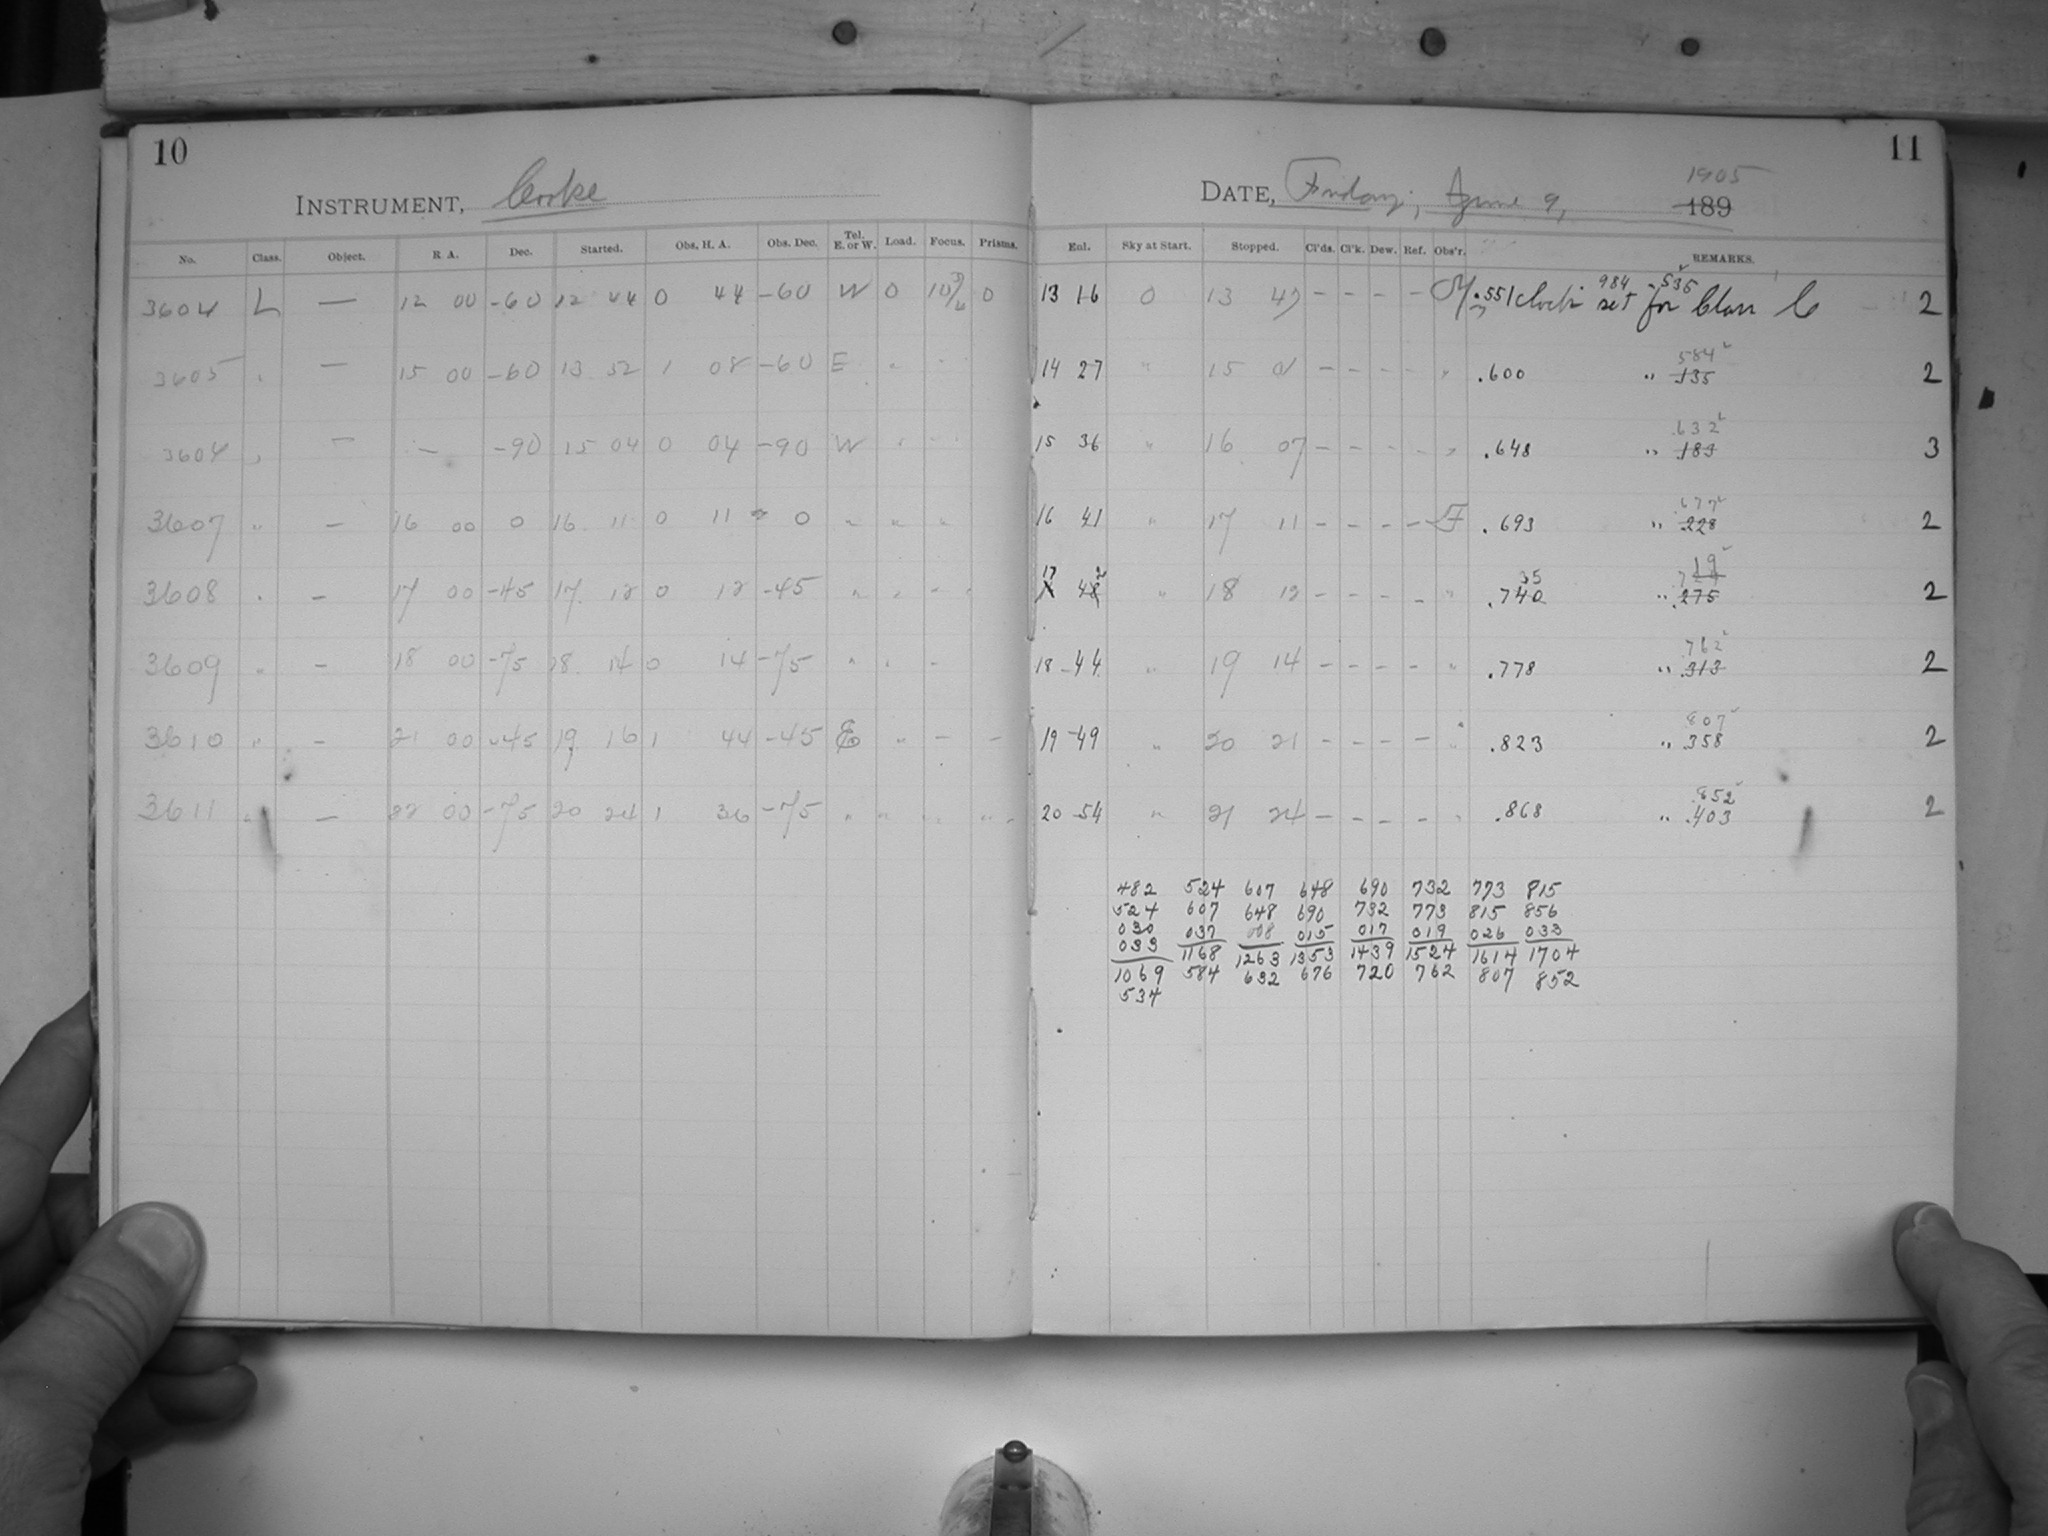 10
INSTRUMENT, Cooke
No. Class. Object. R. A. Dec. Started. Obs. H. A. Obs. Dec. Tel. E. or W. Load. Focus. Prisms.
3604 L — 12 00 -60 12 44 0 44 -60 W 0 10 0
3605 " — 15 00 -60 13 52 1 08 -60 E "
3604 " — — -90 15 04 0 04 -90 W " - -
3607 " — 16 00 0 16 11 0 11 0 " " "
3608 " — 17 00 -45 17 12 0 12 -45 " " - -
3609 " — 18 00 -75 18 14 0 14 -75 " " -
3610 " — 21 00 -45 19 16 1 44 -45 E " - -
3611 " — 22 00 -75 20 24 1 36 -75 " " " "
11
DATE, Friday, June 9, 1905
189
Enl. Sky at Start. Stopped. Cl'ds. Cl'k. Dew. Ref. Obs'r. REMARKS.
984 .535
13 16 0 13 47 - - - - .551 clock set for Class C 2
584
14 27 " 15 01 - - - - " .600 " .135 2
.632
15 36 " 16 07 - - - - " .648 " .183 3
.677
16 41 " 17 11 - - - - F .693 " .228 2
17 2 35 19
X 48 " 18 12 - - - - " .740 " .275 2
.762
18 44 " 19 14 - - - - " .778 " .313 2
807
19 49 " 20 21 - - - - " .823 " .358 2
.852
20 54 " 21 24 - - - - " .868 " .403 2
482 524 607 648 690 732 773 815
524 607 648 690 732 773 815 856
030 037 008 015 017 019 026 033
033 1168 1263 1353 1439 1524 1614 1704
1069 584 632 676 720 762 807 852
534